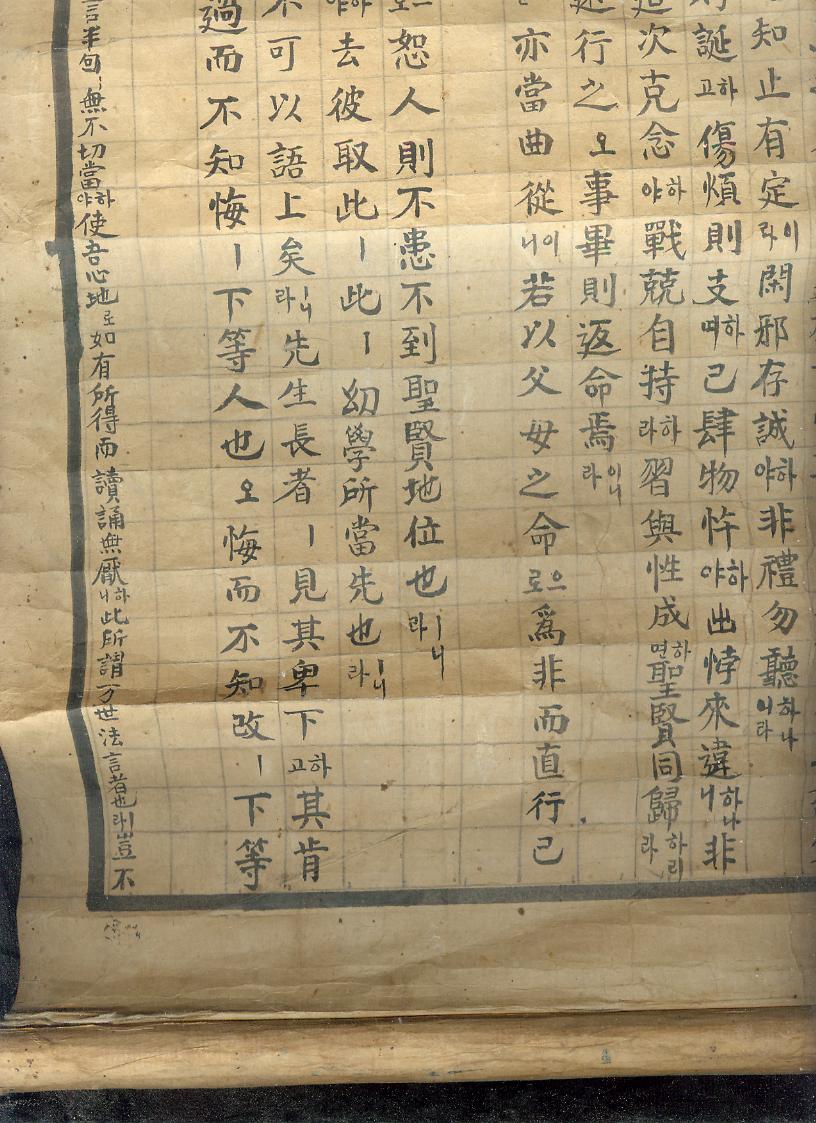 知止有定이라閑邪存誠하야非禮勿聽하나니라
則誕하고傷煩則支하여己肆物忤하야出悖來違하나니非
造次克念하야戰兢自持하라習與性成하면聖賢同歸하리라
行之오事畢則返命焉이니라
亦當曲從이니若以父母之命으로爲非而直行己
으로恕人則不患不到聖賢地位也ㅣ니라
하야去彼取此ㅣ此ㅣ幼學所當先也ㅣ니라
不可以語上矣ㅣ니라先生長者ㅣ見其卑下하고其肯
過而不知悔ㅣ下等人也오悔而不知改ㅣ下等
言半句ㅣ無不切當하야使吾心地로如有所得而讀誦無厭하니此所謂万世法言者也ㅣ라豈不